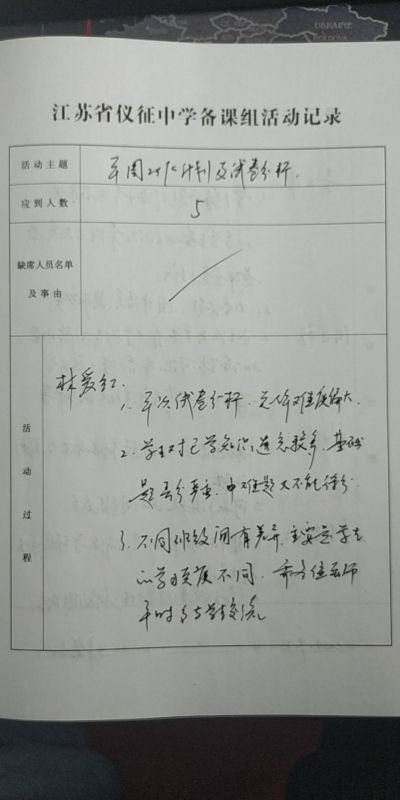 UKRAINE
MOLDOVA
江苏省仪征中学备课组活动记录
活动主题
本周计划及试卷分析.
应到人数
5
缺席人员名单
及事由
活动过程
林爱红:
1. 本次试卷分析. 总体难度偏大.
2. 学生对已学知识遗忘较多. 基础
题丢分严重. 中难题大不能得分.
3. 不同班级间有差异. 主要是学生
的学习态度不同. 希各位老师
平时多与学生交流